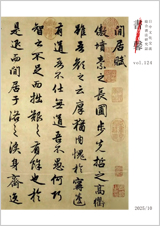 vol.124
閒居賦
傲墳素之長圃步先哲之高衢
雖吾顏之云厚猶內愧於寧蘧
有道吾不仕無道吾不愚何巧
智之不足而拙艱之有餘也於
是退而閒居于洛之涘身齊逸
2025/10